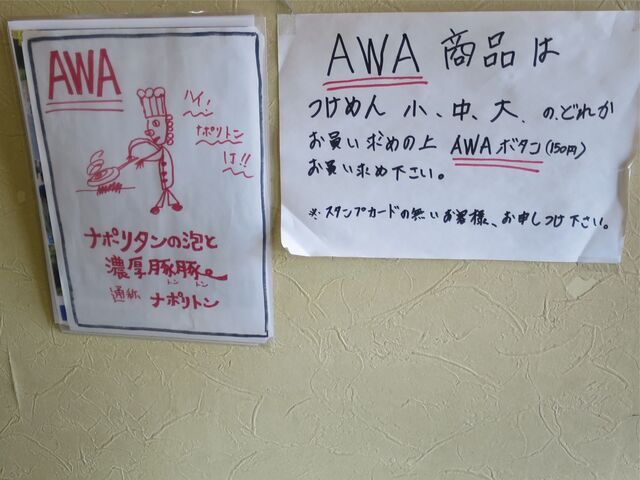 AWA
ハイ!
ナポリトン
は!!
ナポリタンの泡と
濃厚豚豚
トン トン
通称 ナポリトン
AWA 商品は
つけめん 小、中、大、の、どれか
お買い求めの上 AWAボタン(150円)
お買い求め下さい。
※スタンプカードの無いお客様、お申しつけ下さい。